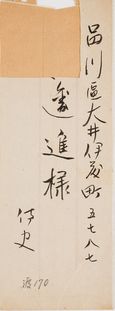 品川區大井伊藤町五七八七
邊進様
侍史
渡170